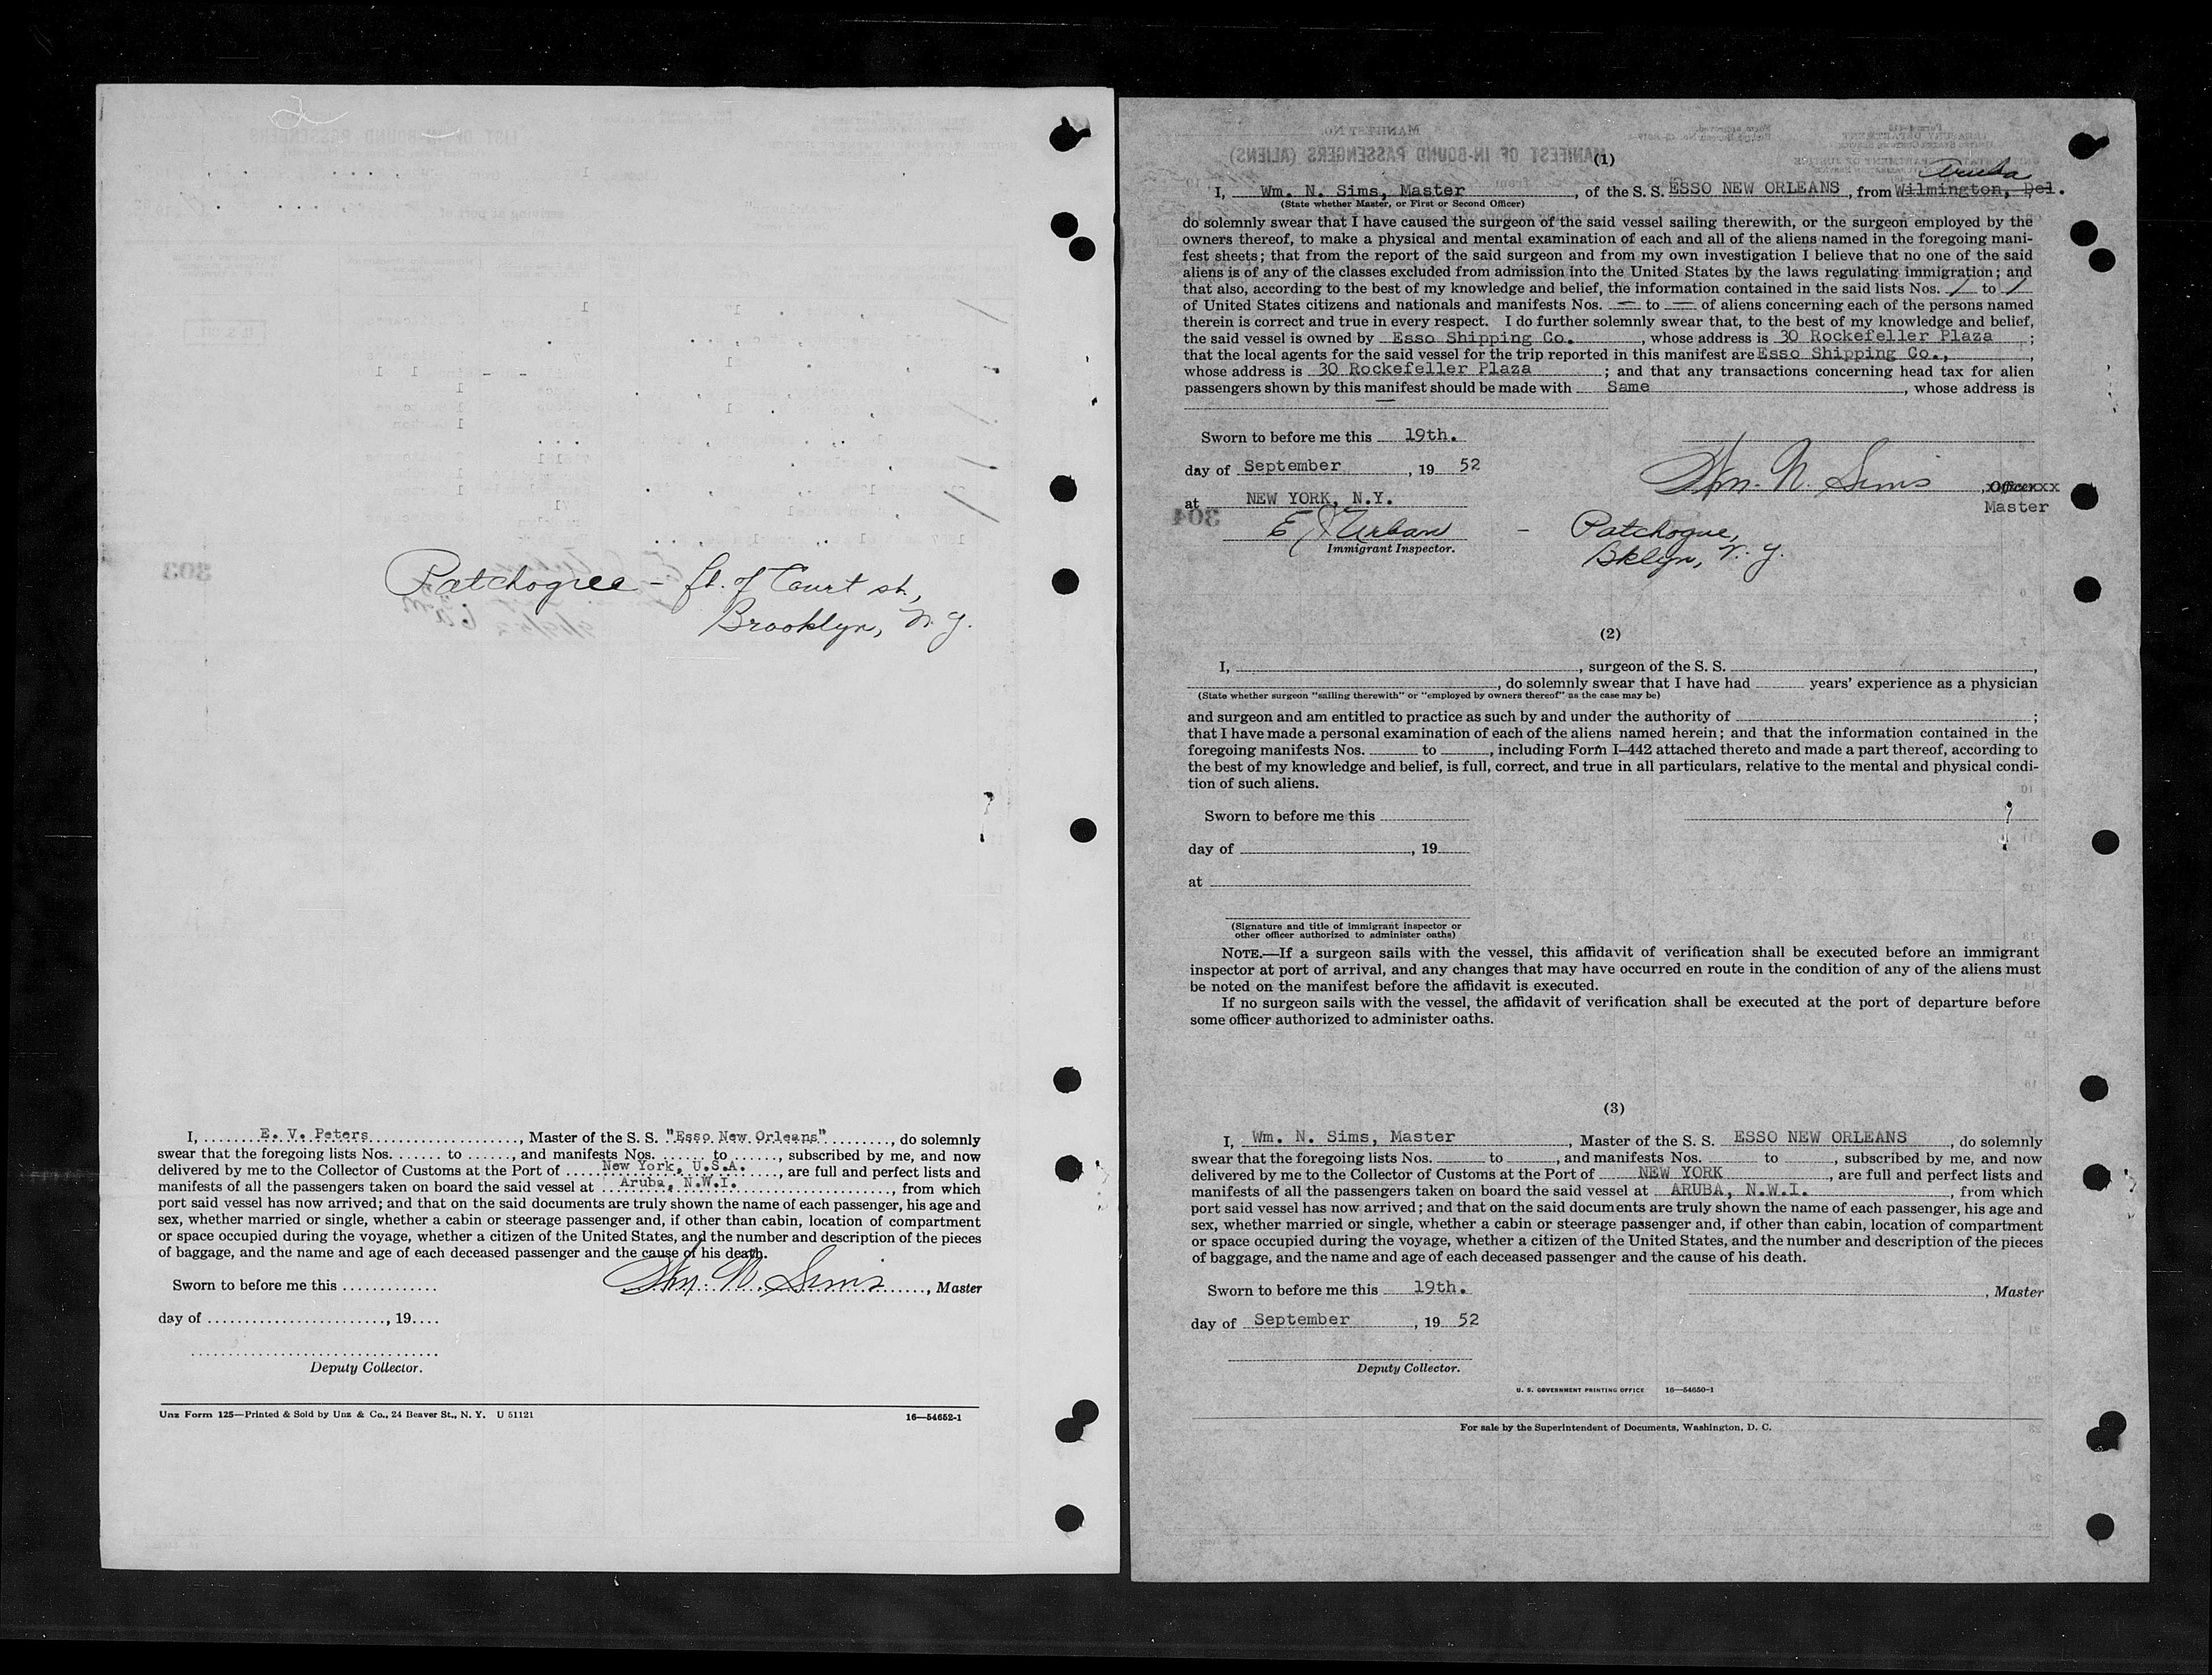 Patchogue - ft. of Court st.,
Brooklyn, N.Y.
I, E. V. Peters, Master of the S. S. "Esso New Orleans", do solemnly
swear that the foregoing lists Nos. ....... to ......., and manifests Nos. ....... to ......., subscribed by me, and now
delivered by me to the Collector of Customs at the Port of New York, U.S.A., are full and perfect lists and
manifests of all the passengers taken on board the said vessel at Aruba, N.W.I., from which
port said vessel has now arrived; and that on the said documents are truly shown the name of each passenger, his age and
sex, whether married or single, whether a cabin or steerage passenger and, if other than cabin, location of compartment
or space occupied during the voyage, whether a citizen of the United States, and the number and description of the pieces
of baggage, and the name and age of each deceased passenger and the cause of his death.
Sworn to before me this ............. Wm. N. Sims, Master
day of ........................, 19....
Deputy Collector.
Unz Form 125—Printed & Sold by Unz & Co., 24 Beaver St., N. Y. U 51121 16—54652-1
(1)
Aruba
I, Wm. N. Sims, Master, of the S. S. ESSO NEW ORLEANS, from Wilmington, Del.
(State whether Master, or First or Second Officer)
do solemnly swear that I have caused the surgeon of the said vessel sailing therewith, or the surgeon employed by the
owners thereof, to make a physical and mental examination of each and all of the aliens named in the foregoing mani-
fest sheets; that from the report of the said surgeon and from my own investigation I believe that no one of the said
aliens is of any of the classes excluded from admission into the United States by the laws regulating immigration; and
that also, according to the best of my knowledge and belief, the information contained in the said lists Nos. 1 to 1
of United States citizens and nationals and manifests Nos. — to — of aliens concerning each of the persons named
therein is correct and true in every respect. I do further solemnly swear that, to the best of my knowledge and belief,
the said vessel is owned by Esso Shipping Co., whose address is 30 Rockefeller Plaza;
that the local agents for the said vessel for the trip reported in this manifest are Esso Shipping Co.,
whose address is 30 Rockefeller Plaza; and that any transactions concerning head tax for alien
passengers shown by this manifest should be made with Same, whose address is
Sworn to before me this 19th.
day of September, 19 52
Wm. N. Sims, Officer
Master
at NEW YORK, N.Y.
E J Urban - Patchogue,
Immigrant Inspector.
Bklyn, N.Y.
(2)
I, , surgeon of the S. S. ,
, do solemnly swear that I have had years' experience as a physician
(State whether surgeon "sailing therewith" or "employed by owners thereof" as the case may be)
and surgeon and am entitled to practice as such by and under the authority of ;
that I have made a personal examination of each of the aliens named herein; and that the information contained in the
foregoing manifests Nos. to , including Form I-442 attached thereto and made a part thereof, according to
the best of my knowledge and belief, is full, correct, and true in all particulars, relative to the mental and physical condi-
tion of such aliens.
Sworn to before me this
day of , 19
at
(Signature and title of immigrant inspector or
other officer authorized to administer oaths)
NOTE.—If a surgeon sails with the vessel, this affidavit of verification shall be executed before an immigrant
inspector at port of arrival, and any changes that may have occurred en route in the condition of any of the aliens must
be noted on the manifest before the affidavit is executed.
If no surgeon sails with the vessel, the affidavit of verification shall be executed at the port of departure before
some officer authorized to administer oaths.
(3)
I, Wm. N. Sims, Master, Master of the S. S. ESSO NEW ORLEANS, do solemnly
swear that the foregoing lists Nos. to , and manifests Nos. to , subscribed by me, and now
delivered by me to the Collector of Customs at the Port of NEW YORK, are full and perfect lists and
manifests of all the passengers taken on board the said vessel at ARUBA, N.W.I., from which
port said vessel has now arrived; and that on the said documents are truly shown the name of each passenger, his age and
sex, whether married or single, whether a cabin or steerage passenger and, if other than cabin, location of compartment
or space occupied during the voyage, whether a citizen of the United States, and the number and description of the pieces
of baggage, and the name and age of each deceased passenger and the cause of his death.
Sworn to before me this 19th.
, Master
day of September, 19 52
Deputy Collector.
U. S. GOVERNMENT PRINTING OFFICE 16—54650-1
For sale by the Superintendent of Documents, Washington, D. C.